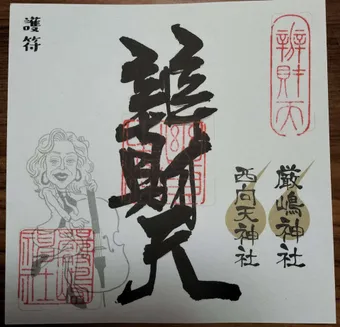 厳嶋神社
西向天神社
辨財天
護符
辨財天